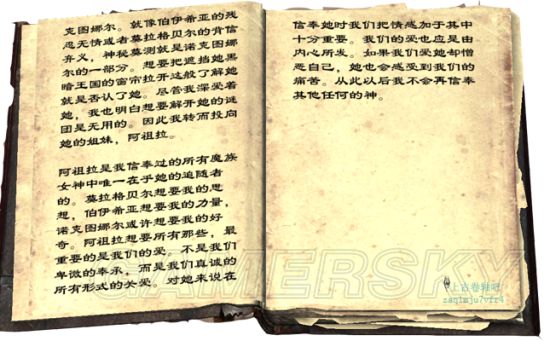 克图娜尔。就像伯伊希亚的残
忍无情或者莫拉格贝尔的背信
弃义，神秘莫测就是诺克图娜
尔的一部分。想要把遮挡她黑
暗王国的窗帘拉开这般了解她
就是否认了她。尽管我深爱着
她，我也明白想要解开她的谜
团是无用的。因此我转而投向
她的姐妹，阿祖拉。
阿祖拉是我信奉过的所有魔族
女神中唯一在乎她的追随者
的。莫拉格贝尔想要我的思
想，伯伊希亚想要我的力量，
诺克图娜尔或许想要我的好
奇。阿祖拉想要所有那些，最
重要的是我们的爱。不是我们
卑微的奉承，而是我们真诚的
所有形式的关爱。对她来说在
信奉她时我们把情感加于其中
十分重要。我们的爱也应是由
内心所发。如果我们爱她却憎
恶自己，她也会感受到我们的
痛苦。从此以后我不会再信奉
其他任何的神。
GAMERSKY
上古卷轴吧
zaq1mju7vfr4